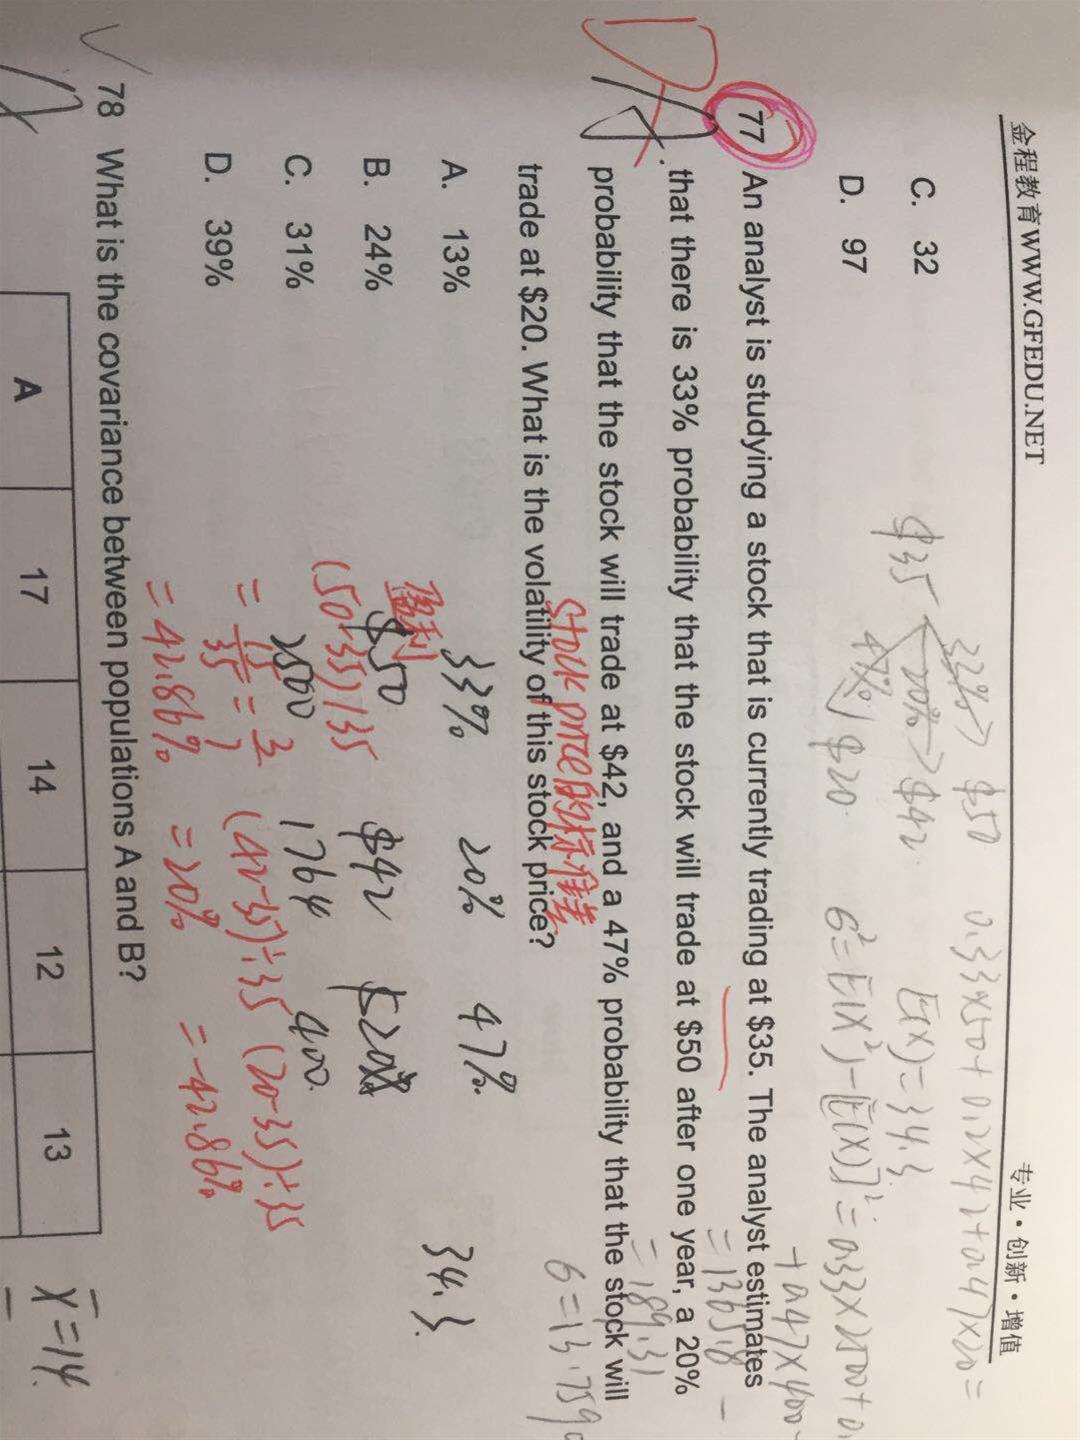 金程教育WWW.GFEDU.NET 专业·创新·增值
C. 32
D. 97
0.33×50+0.2×42+0.47×20=
$35
33% $50
20% $42
47% $20
E(X)=34.3
6²=E(X²)-[E(X)]²=0.33×2500+0.
+0.47×400-
=1365.8-
=189.31
6=13.759
77 An analyst is studying a stock that is currently trading at $35. The analyst estimates
that there is 33% probability that the stock will trade at $50 after one year, a 20%
probability that the stock will trade at $42, and a 47% probability that the stock will
trade at $20. What is the volatility of this stock price?
Stock price的标准差
A. 13%
B. 24%
C. 31%
D. 39%
33% 20% 47%
34.3
盈利
$50 $42 $20
2500 1764 400
(50-35)/35 (42-35)÷35 (20-35)÷35
=15/35=3/7
=42.86% =20% =-42.86%
78 What is the covariance between populations A and B?
A 17 14 12 13
X=14